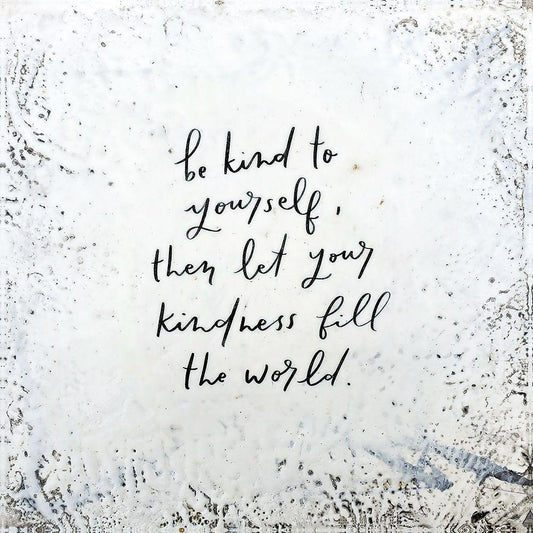 be kind to
yourself,
then let your
kindness fill
the world.